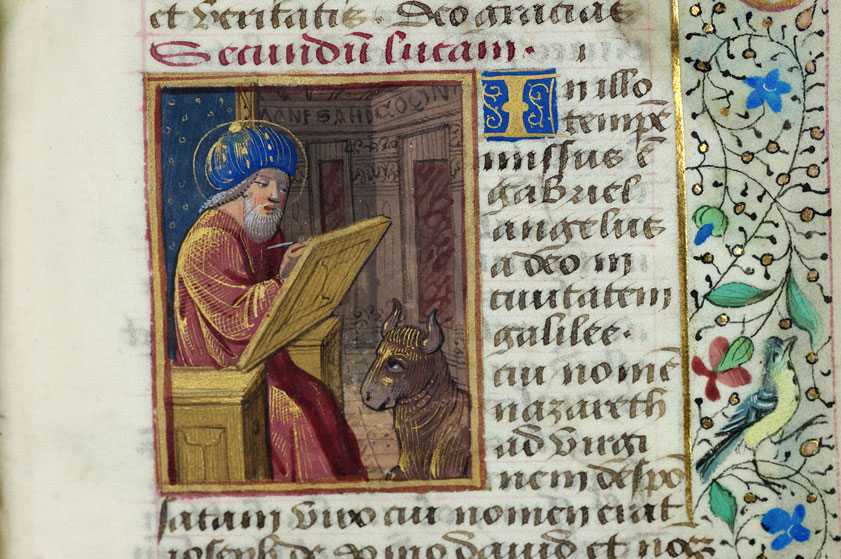 et veritatis. Deo gracias
Secundu̅ lucam.
In illo
temp̅e
missus e̅
gabriel
angelus
a deo in
civitatem
galilee.
cui nome̅
nazareth
ad virgi
nem despo̅
satam viro cui nomen erat
ioseph de domo david et no̅